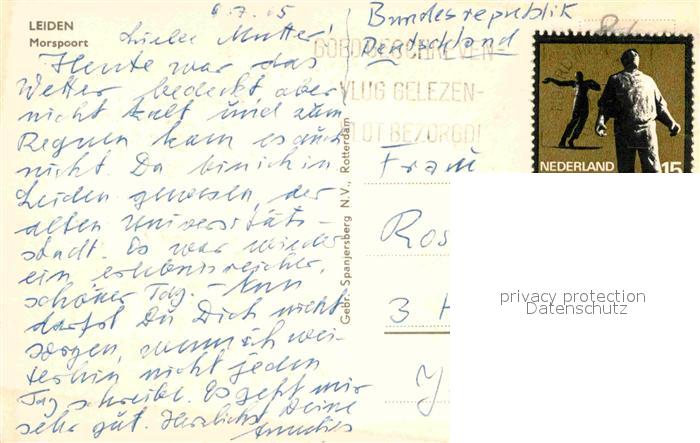 LEIDEN
Morspoort
6.7.65
Liebe Mutter!
Heute war das
Wetter bedeckt aber
nicht kalt und zum
Regnen kam es auch
nicht. Da bin ich in
Leiden gewesen, der
alten Universitäts-
stadt. Es war wieder
ein erlebnisreicher,
schöner Tag. – Nun
darfst Du Dich nicht
sorgen, wenn ich wei-
terhin nicht jeden
Tag schreibe. Es geht mir
sehr gut. Herzlichst Deine
Gebr. Spanjersberg N.V., Rotterdam
Bundesrepublik
Deutschland
GOED GESCHREVEN-
VLUG GELEZEN-
VLOT BEZORGD!
NEDERLAND
15
Frau
Ros
3 H
privacy protection
Datenschutz